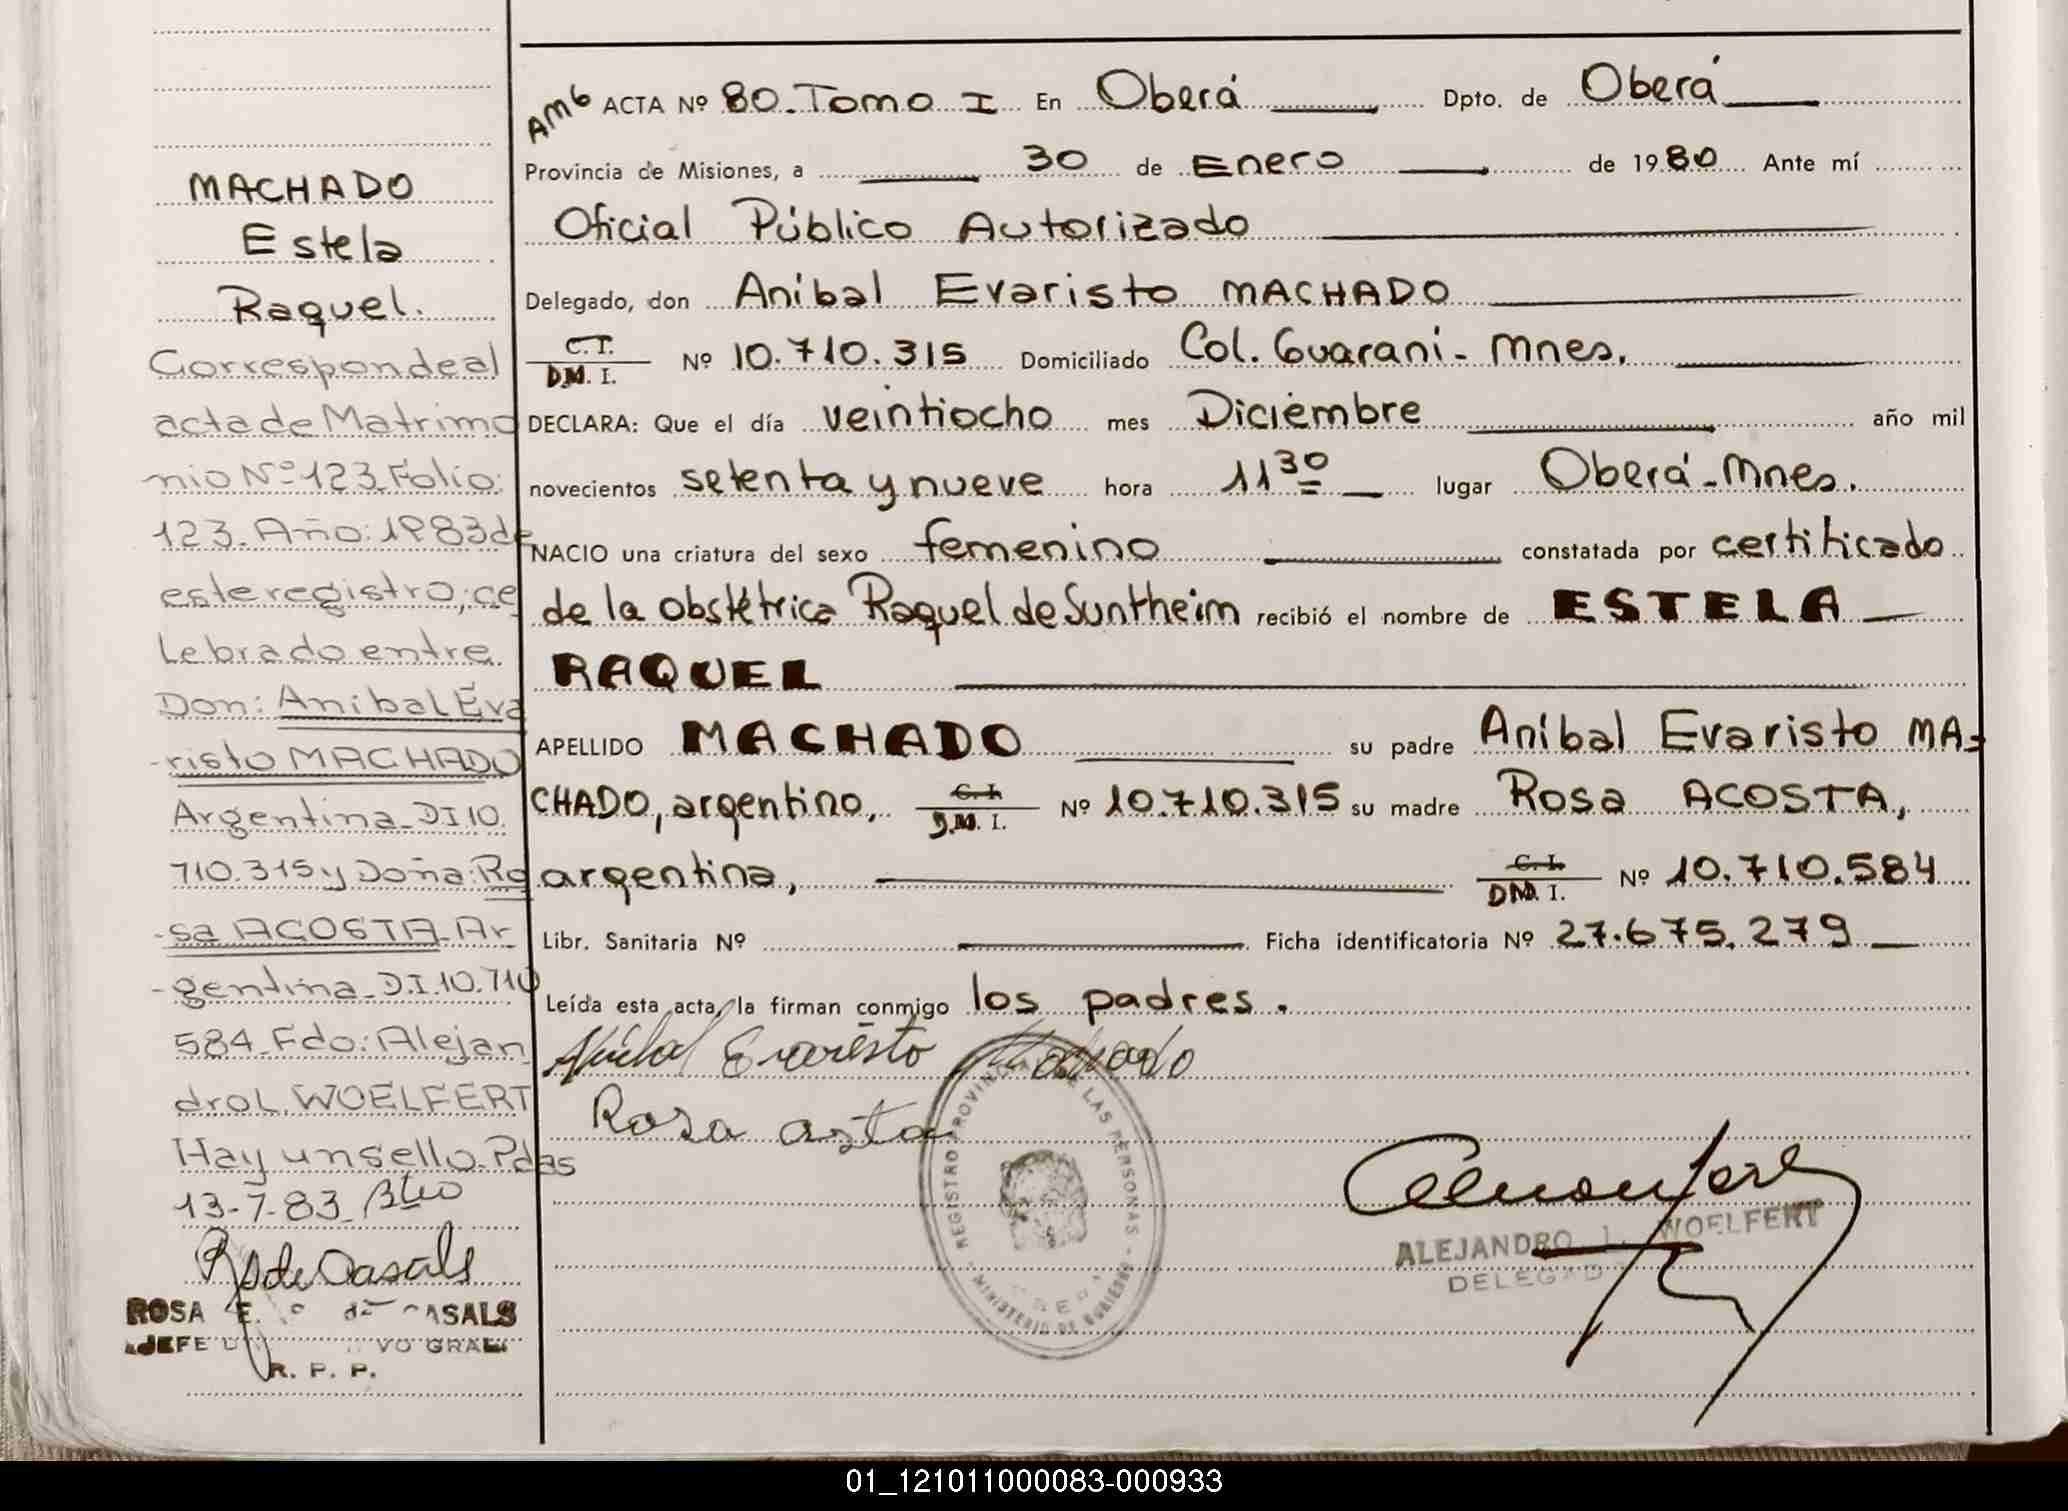 MACHADO
Estela
Raquel.
Corresponde al
acta de Matrimo
nio Nº 123 Folio:
123. Año: 1983 de
este registro; ce
lebrado entre
Don: Anibal Eva
-risto MACHADO
Argentina_DI 10.
710.315 y Doña: Ro
-sa ACOSTA_Ar
-gentina_D.I.10.710
584_Fdo: Alejan
dro L. WOELFERT
Hay un sello_Pdas
13-7-83_
ROSA E. de CASALS
JEFE GRAL
R. P. P.
AMb ACTA Nº 80. Tomo I En Oberá Dpto. de Oberá
Provincia de Misiones, a 30 de Enero de 1980 Ante mí
Oficial Público Autorizado
Delegado, don Aníbal Evaristo MACHADO
C.I.
D.M.I. Nº 10.710.315 Domiciliado Col. Guaraní - Mnes.
DECLARA: Que el día veintiocho mes Diciembre año mil
novecientos setenta y nueve hora 11 30 lugar Oberá - Mnes.
NACIO una criatura del sexo femenino constatada por certificado
de la obstétrica Raquel de Suntheim recibió el nombre de ESTELA
RAQUEL
APELLIDO MACHADO su padre Aníbal Evaristo MA=
CHADO, argentino, C.I. D.M.I. Nº 10.710.315 su madre Rosa ACOSTA,
argentina, C.I. D.M.I. Nº 10.710.584
Libr. Sanitaria Nº Ficha identificatoria Nº 27.675.279
Leída esta acta, la firman conmigo los padres.
Anibal Evaristo Machado
Rosa
REGISTRO PROVINCIAL DE LAS PERSONAS - MINISTERIO DE GOBIERNO -
OBERA
ALEJANDRO L. WOELFERT
DELEGADO
01_121011000083-000933